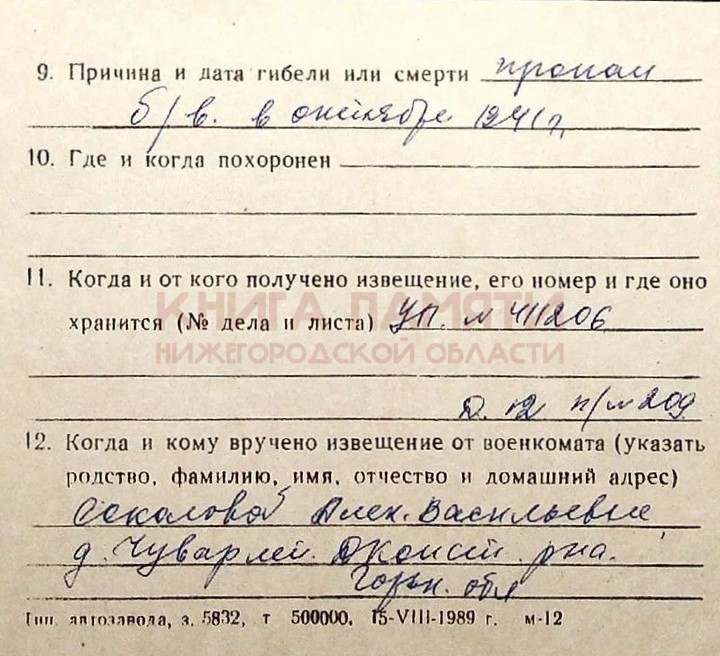 9. Причина и дата гибели или смерти пропал
б/в. в октябре 1941 г.
10. Где и когда похоронен
11. Когда и от кого получено извещение, его номер и где оно
КНИГА ПАМЯТИ
хранится (№ дела и листа) УП. № 411206
НИЖЕГОРОДСКОЙ ОБЛАСТИ
Д. 12 п/№ 209
12. Когда и кому вручено извещение от военкомата (указать
родство, фамилию, имя, отчество и домашний адрес)
Соколовой Алек. Васильевне
д. Чуварлеи рна.
Горьк. обл
Тип. автозавода, з. 5832, т 500000, 15-VIII-1989 г. м-12